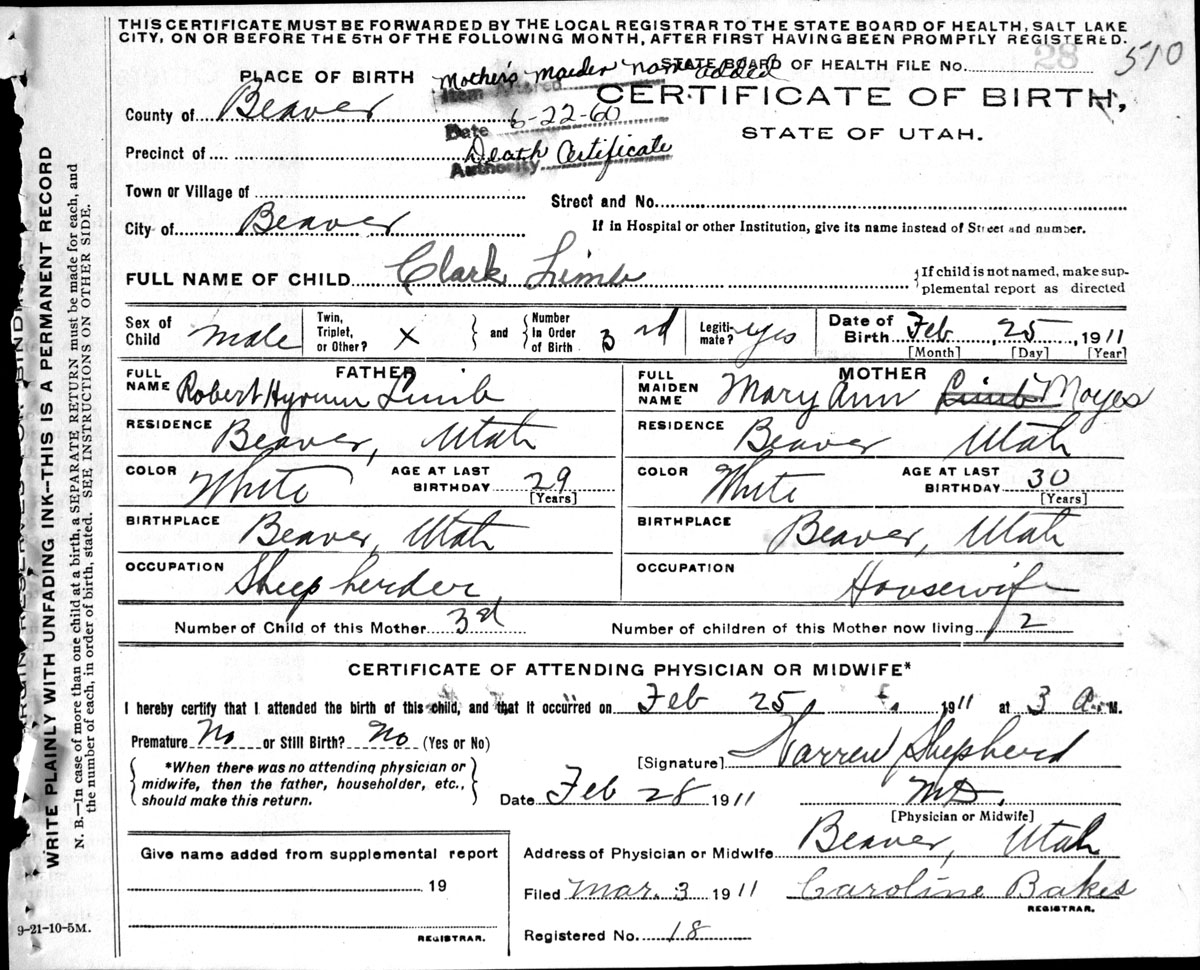 THIS CERTIFICATE MUST BE FORWARDED BY THE LOCAL REGISTRAR TO THE STATE BOARD OF HEALTH, SALT LAKE
CITY, ON OR BEFORE THE 5TH OF THE FOLLOWING MONTH, AFTER FIRST HAVING BEEN PROMPTLY REGISTERED.
STATE BOARD OF HEALTH FILE No. 28 510
PLACE OF BIRTH
Mother's maiden name added
Item
CERTIFICATE OF BIRTH,
County of Beaver
Date 6-22-60
STATE OF UTAH.
Precinct of
Death Certificate
Authority
Town or Village of
Street and No.
City of Beaver
If in Hospital or other Institution, give its name instead of Street and number.
FULL NAME OF CHILD Clark Limb
{If child is not named, make sup-
plemental report as directed
Sex of Child male
Twin, Triplet, or Other? X } and { Number In Order of Birth 3rd
Legiti-mate? yes
Date of Birth Feb, 25, 1911
[Month] [Day] [Year]
FATHER
FULL NAME Robert Hyrum Limb
RESIDENCE Beaver, Utah
COLOR White AGE AT LAST BIRTHDAY 29 [Years]
BIRTHPLACE Beaver, Utah
OCCUPATION Sheepherder
MOTHER
FULL MAIDEN NAME Mary Ann Limb Moyes
RESIDENCE Beaver Utah
COLOR White AGE AT LAST BIRTHDAY 30 [Years]
BIRTHPLACE Beaver, Utah
OCCUPATION Housewife
Number of Child of this Mother 3rd Number of children of this Mother now living 2
CERTIFICATE OF ATTENDING PHYSICIAN OR MIDWIFE*
I hereby certify that I attended the birth of this child, and that it occurred on Feb 25, 1911 at 3 a. M.
Premature No or Still Birth? No (Yes or No)
[Signature] Warren Shepherd
{ *When there was no attending physician or
midwife, then the father, householder, etc.,
should make this return. }
Date Feb 28 1911 M D.
[Physician or Midwife]
Give name added from supplemental report
19
REGISTRAR.
Address of Physician or Midwife Beaver, Utah
Filed Mar. 3 1911 Caroline Bakes
REGISTRAR.
Registered No. 18
9-21-10-5M.
WRITE PLAINLY WITH UNFADING INK--THIS IS A PERMANENT RECORD
N. B.--In case of more than one child at a birth, a SEPARATE RETURN must be made for each, and
the number of each, in order of birth, stated. SEE INSTRUCTIONS ON OTHER SIDE.